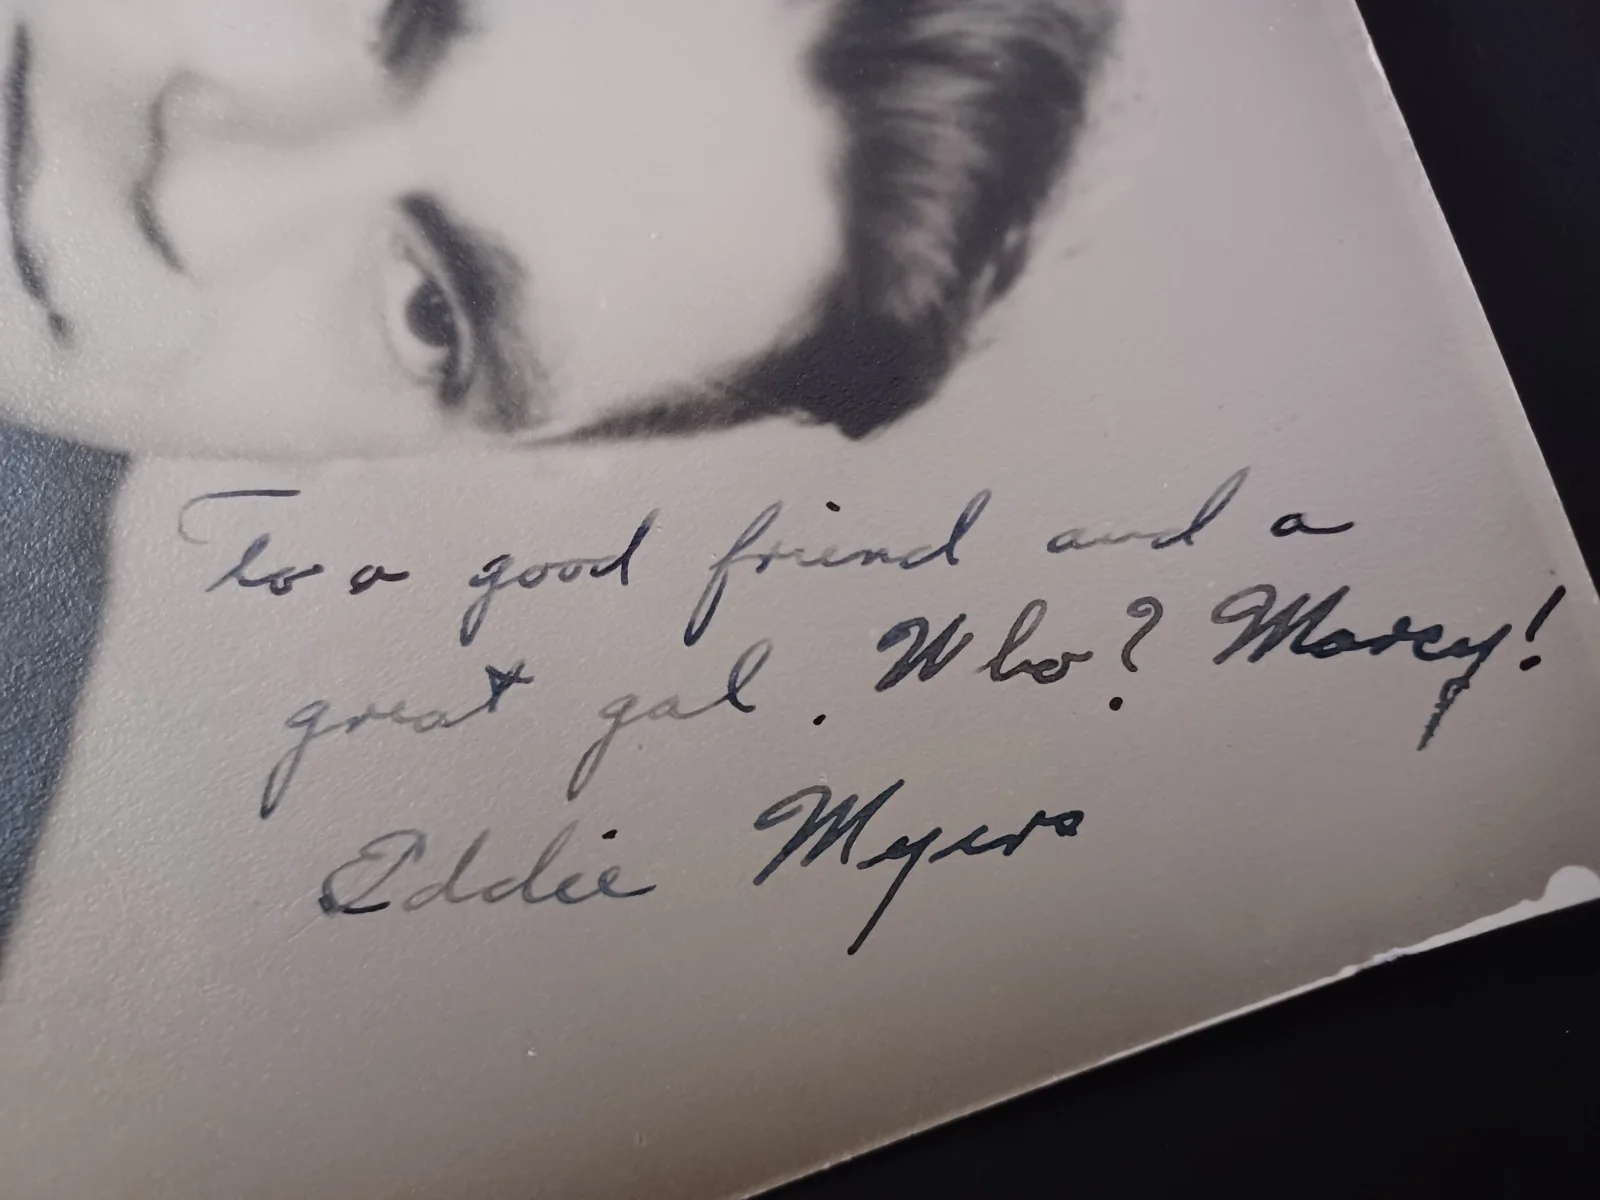 To a good friend and a
great gal. Who? Marcy!
Eddie Myers